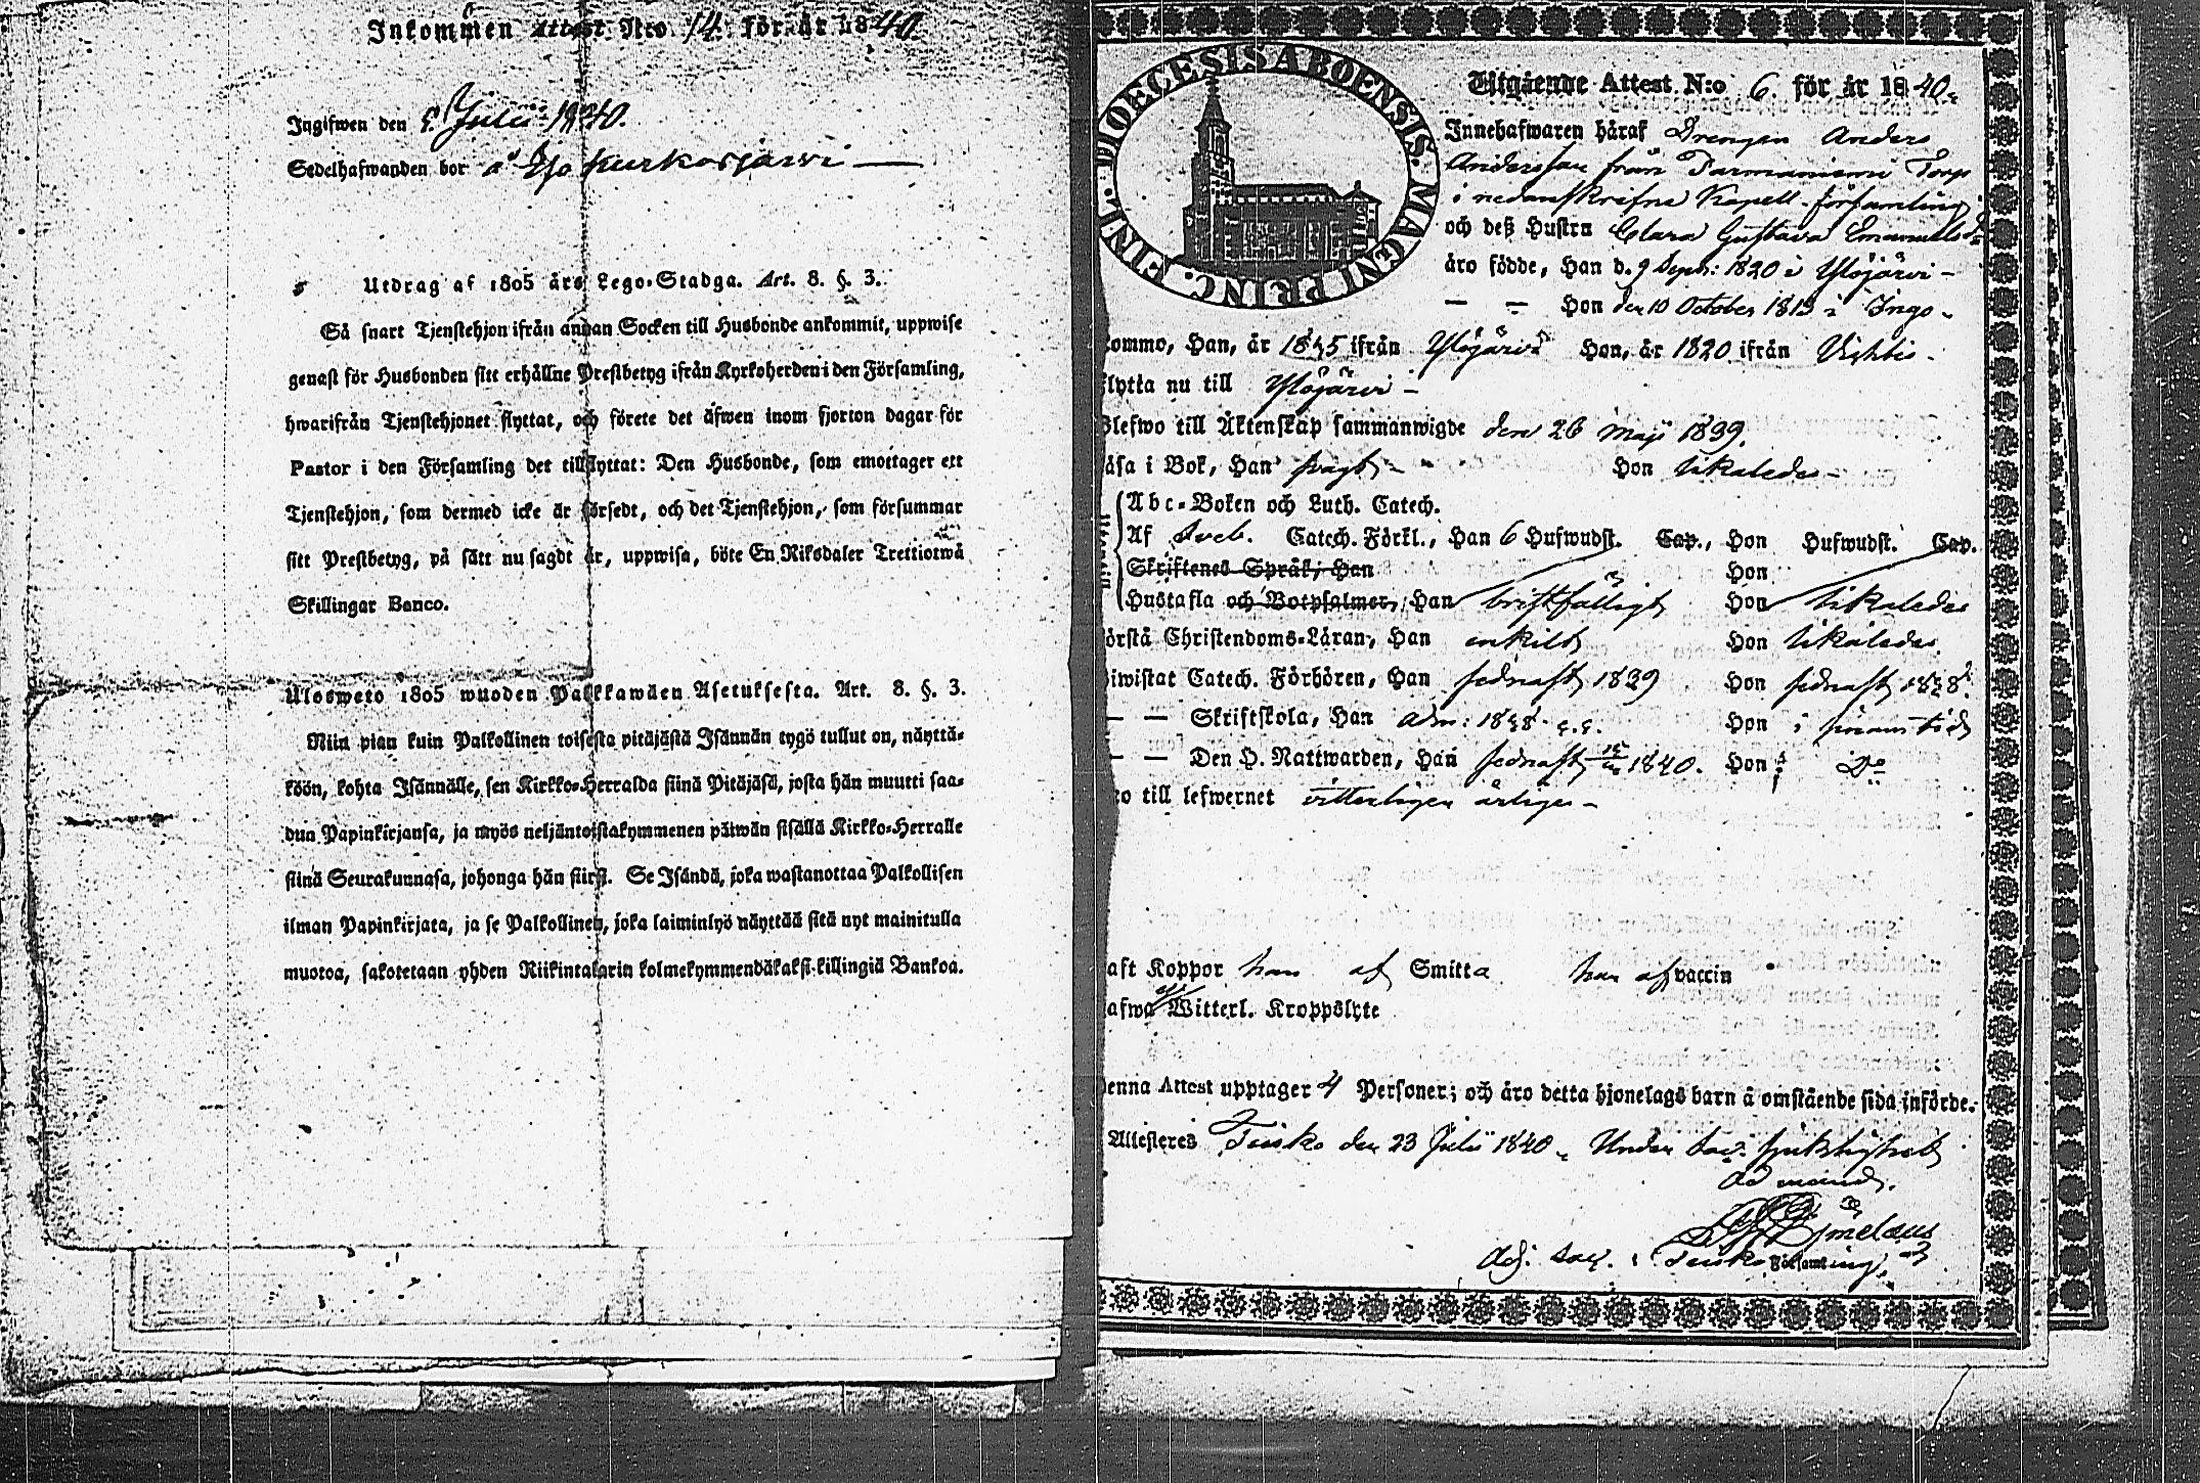 Inkommen Attest Nro 14. för år 1840.
Ingifwen den Julii 1840.
Sedelhafwanden bor å Kurkosjärwi
Utdrag af 1805 års Lego-Stadga. Art. 8. §. 3.
Så snart Tjenstehjon ifrån annan Socken till Husbonde ankommit, uppwise
genast för Husbonden sitt erhållne Prestbetyg ifrån Kyrkoherden i den Församling,
hwarifrån Tjenstehjonet flyttat, och förete det äfwen inom fjorton dagar för
Pastor i den Församling det tillflyttat: Den Husbonde, som emottager ett
Tjenstehjon, som dermed icke är försedt, och det Tjenstehjon, som försummar
sitt Prestbetyg, på sätt nu sagdt är, uppwisa, böte En Riksdaler Trettiotwå
Skillingar Banco.
Ulosweto 1805 wuoden Palkkawäen Asetuksesta. Art. 8. §. 3.
Niin pian kuin Palkollinen toisesta pitäjästä Isännän tygö tullut on, näyttä-
köön, kohta Isännälle, sen Kirkko-Herralda siinä Pitäjäsä, josta hän muutti saa-
dun Papinkirjansa, ja myös neljäntoistakymmenen päiwän sisällä Kirkko-Herralle
siinä Seurakunnasa, johonga hän siirsi. Se Isändä, joka wastanottaa Palkollisen
ilman Papinkirjata, ja se Palkollinen, joka laiminlyö näyttää sitä nyt mainitulla
muotoa, sakotetaan yhden Riikintalarin kolmekymmendäkaksi killingiä Bankoa.
DIOECESIS ABOENSIS. MAGNI PRINC. FINL.
Utgående Attest N:o 6. för år 1840.
Innehafwaren häraf Drengen Anders
Andersson från Parmaniemi Torp
i nedanskrifne Kapell-församling
och deß Hustru Clara Gustava Emanuelsd:r
äro födde, Han d. 9 Sept: 1820 i Ylöjärvi -
— — Hon den 10 October 1813 i Ingo -
kommo, Han, år ifrån Ylöjärvi Hon, år 1820 ifrån Vichtis -
flytta nu till Ylöjärvi -
Blefwo till Äktenskap sammanwigde den 26 Maji 1839.
läsa i Bok, Han Hon likaledes -
Abc-Boken och Luth. Catech.
Af Sveb. Catech. Förkl., Han 6 Hufwudst. Cap., Hon Hufwudst. Cap.
Skriftenes Språk; Han Hon
Hustafla och Botpsalmer, Han bristfälligt Hon likaledes
förstå Christendoms-Läran, Han enkelt Hon likaledes.
biwistat Catech. Förhören, Han sednast 1839 Hon sednast
— — Skriftskola, Han adm: Hon i
— — Den H. Nattwarden, Han sednast 1840. Hon D:o
äro till lefwernet vitterligen ärlige -
haft Koppor han af Smitta hon af vaccin
hafwa ej Witterl. Kroppslyte
Denna Attest upptager 4 Personer; och äro detta hjonelags barn å omstående sida införde.
Attesteres Teisko den 23 Julii 1840. Under Sac:
Adj. Sac. i Teisko Församling.